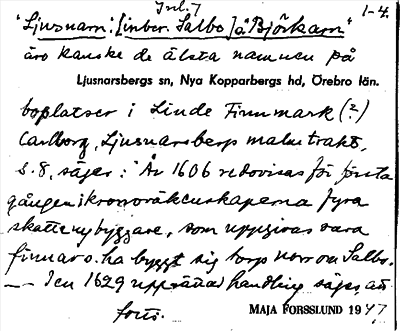 Inl. 7
1-4.
"Ljusnarn: [inber. Salbo] å "Björkarn"
äro kanske de älsta namnen på
Ljusnarsbergs sn, Nya Kopparbergs hd, Örebro län.
boplatser i Linde Finnmark (?)
Carlborg, Ljusnarsbergs malmtrakt,
s. 8, säger: "År 1606 redovisas för första
gången i kronoräkenskaperna fyra
skattenybyggare, som uppgivas vara
finnar o. ha byggt sig torp norr om Salbo.
— I en 1629 upprättad handling säges, att
forts.
MAJA FORSSLUND 1947